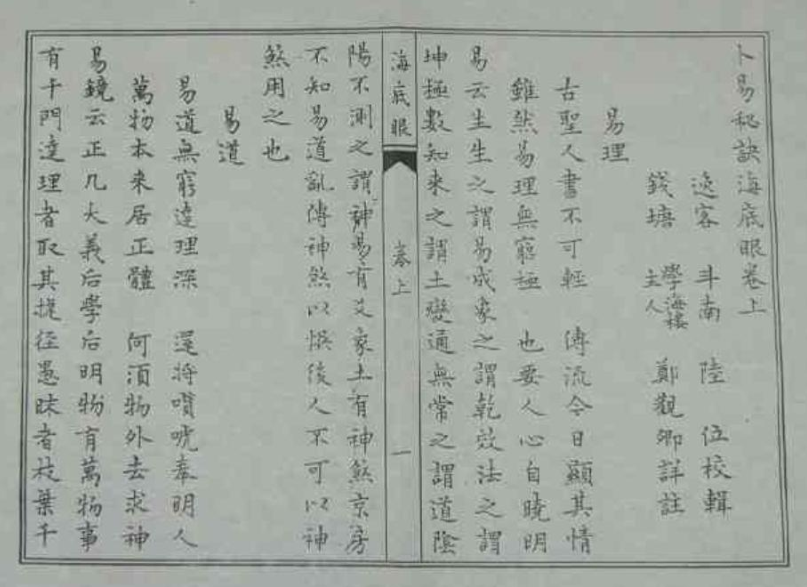 卜易秘訣海底眼卷上
逸客 斗南 陸 位校輯
錢塘 學海樓主人 鄭觀卿詳註
易理
古聖人書不可輕 傳流今日顯其情
雖然易理無窮極 也要人心自曉明
易云生生之謂易成象之謂乾效法之謂
坤極數知来之謂土變通無常之謂道陰
海底眼 卷上 一
陽不測之謂神易有爻象土有神煞京房
不知易道亂傳神煞以悞後人不可以神
煞用之也
易道
易道無窮達理深 運將嘖唬奉明人
萬物本来居正體 何須物外去求神
易鏡云正几大義后學后明物有萬物事
有千門達理者取其捷径愚昧者枝葉千